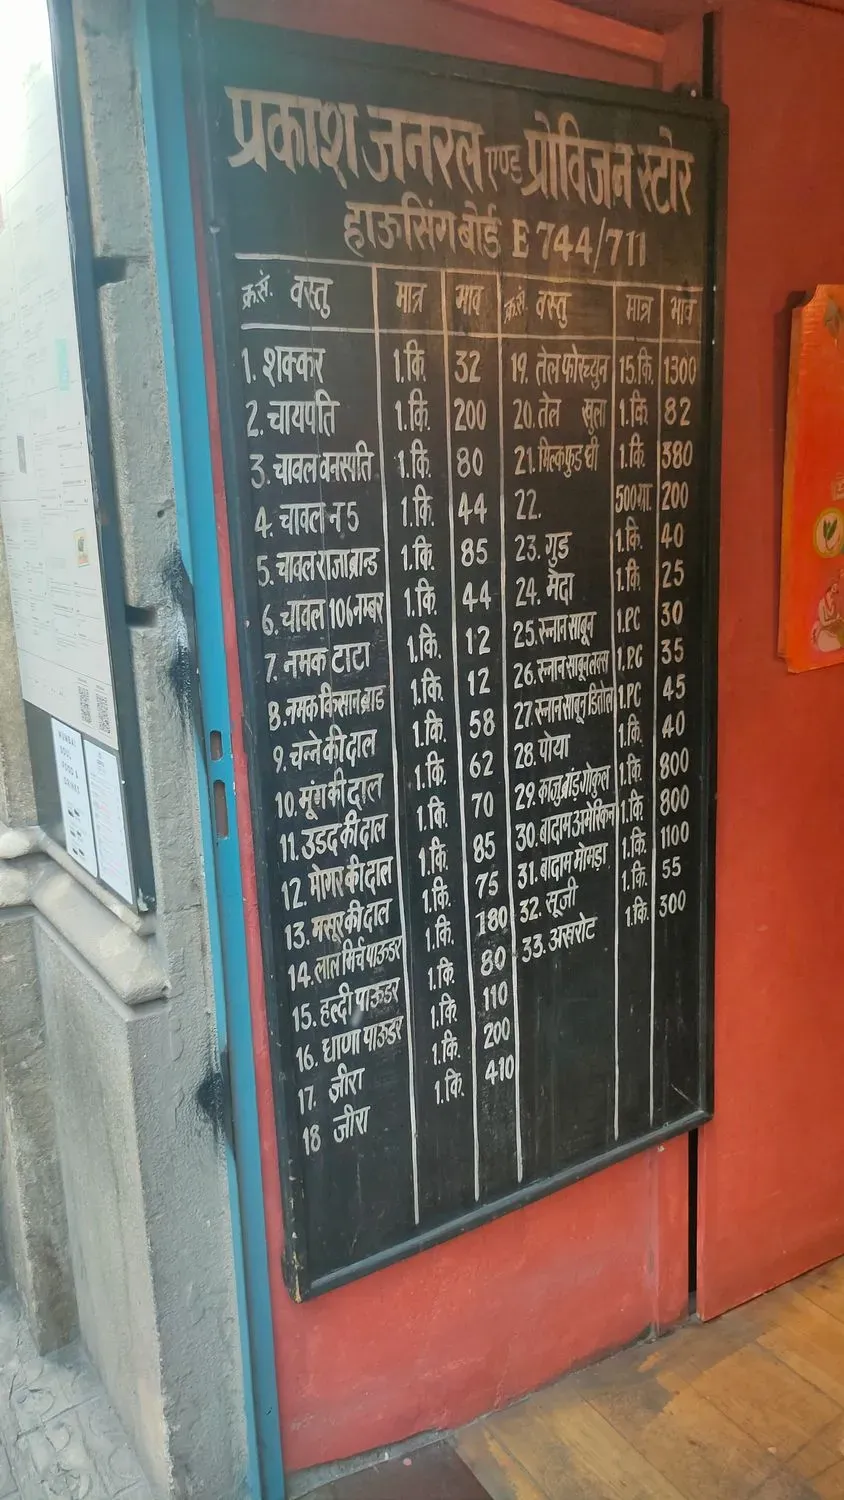 प्रकाश जनरल एण्ड प्रोविजन स्टोर
हाऊसिंग बोर्ड E 744/711
क्र.सं. वस्तु मात्र भाव
1. शक्कर 1.कि. 32
2. चायपति 1.कि. 200
3. चावल वनस्पति 1.कि. 80
4. चावल न 5 1.कि. 44
5. चावल राजाब्रान्ड 1.कि. 85
6. चावल 106 नम्बर 1.कि. 44
7. नमक टाटा 1.कि. 12
8. नमक किसान ब्राड 1.कि. 12
9. चन्ने की दाल 1.कि. 58
10. मूंग की दाल 1.कि. 62
11. उडद की दाल 1.कि. 70
12. मोगर की दाल 1.कि. 85
13. मसूर की दाल 1.कि. 75
14. लाल मिर्च पाऊडर 1.कि. 180
15. हल्दी पाऊडर 1.कि. 80
16. धाणा पाऊडर 1.कि. 110
17. जीरा 1.कि. 200
18 जीरा 1.कि. 410
क्र.सं. वस्तु मात्र भाव
19. तेल फोरच्युन 15.कि. 1300
20. तेल खुला 1.कि. 82
21. मिल्कफुड घी 1.कि. 380
22. 500ग्रा. 200
23. गुड 1.कि. 40
24. मैदा 1.कि. 25
25. स्नान साबून 1.PC 30
26. स्नान साबून लक्स 1.PC 35
27. स्नान साबून डितोल 1.PC 45
28. पोया 1.कि. 40
29. काजु ब्रांड गोकुल 1.कि. 800
30. बादाम अमेरिकन 1.कि. 800
31. बादाम मोमड़ा 1.कि. 1100
32. सूजी 1.कि. 55
33. अखरोट 1.कि. 300
MUMBAI
SOUL
FOOD &
DRINKS